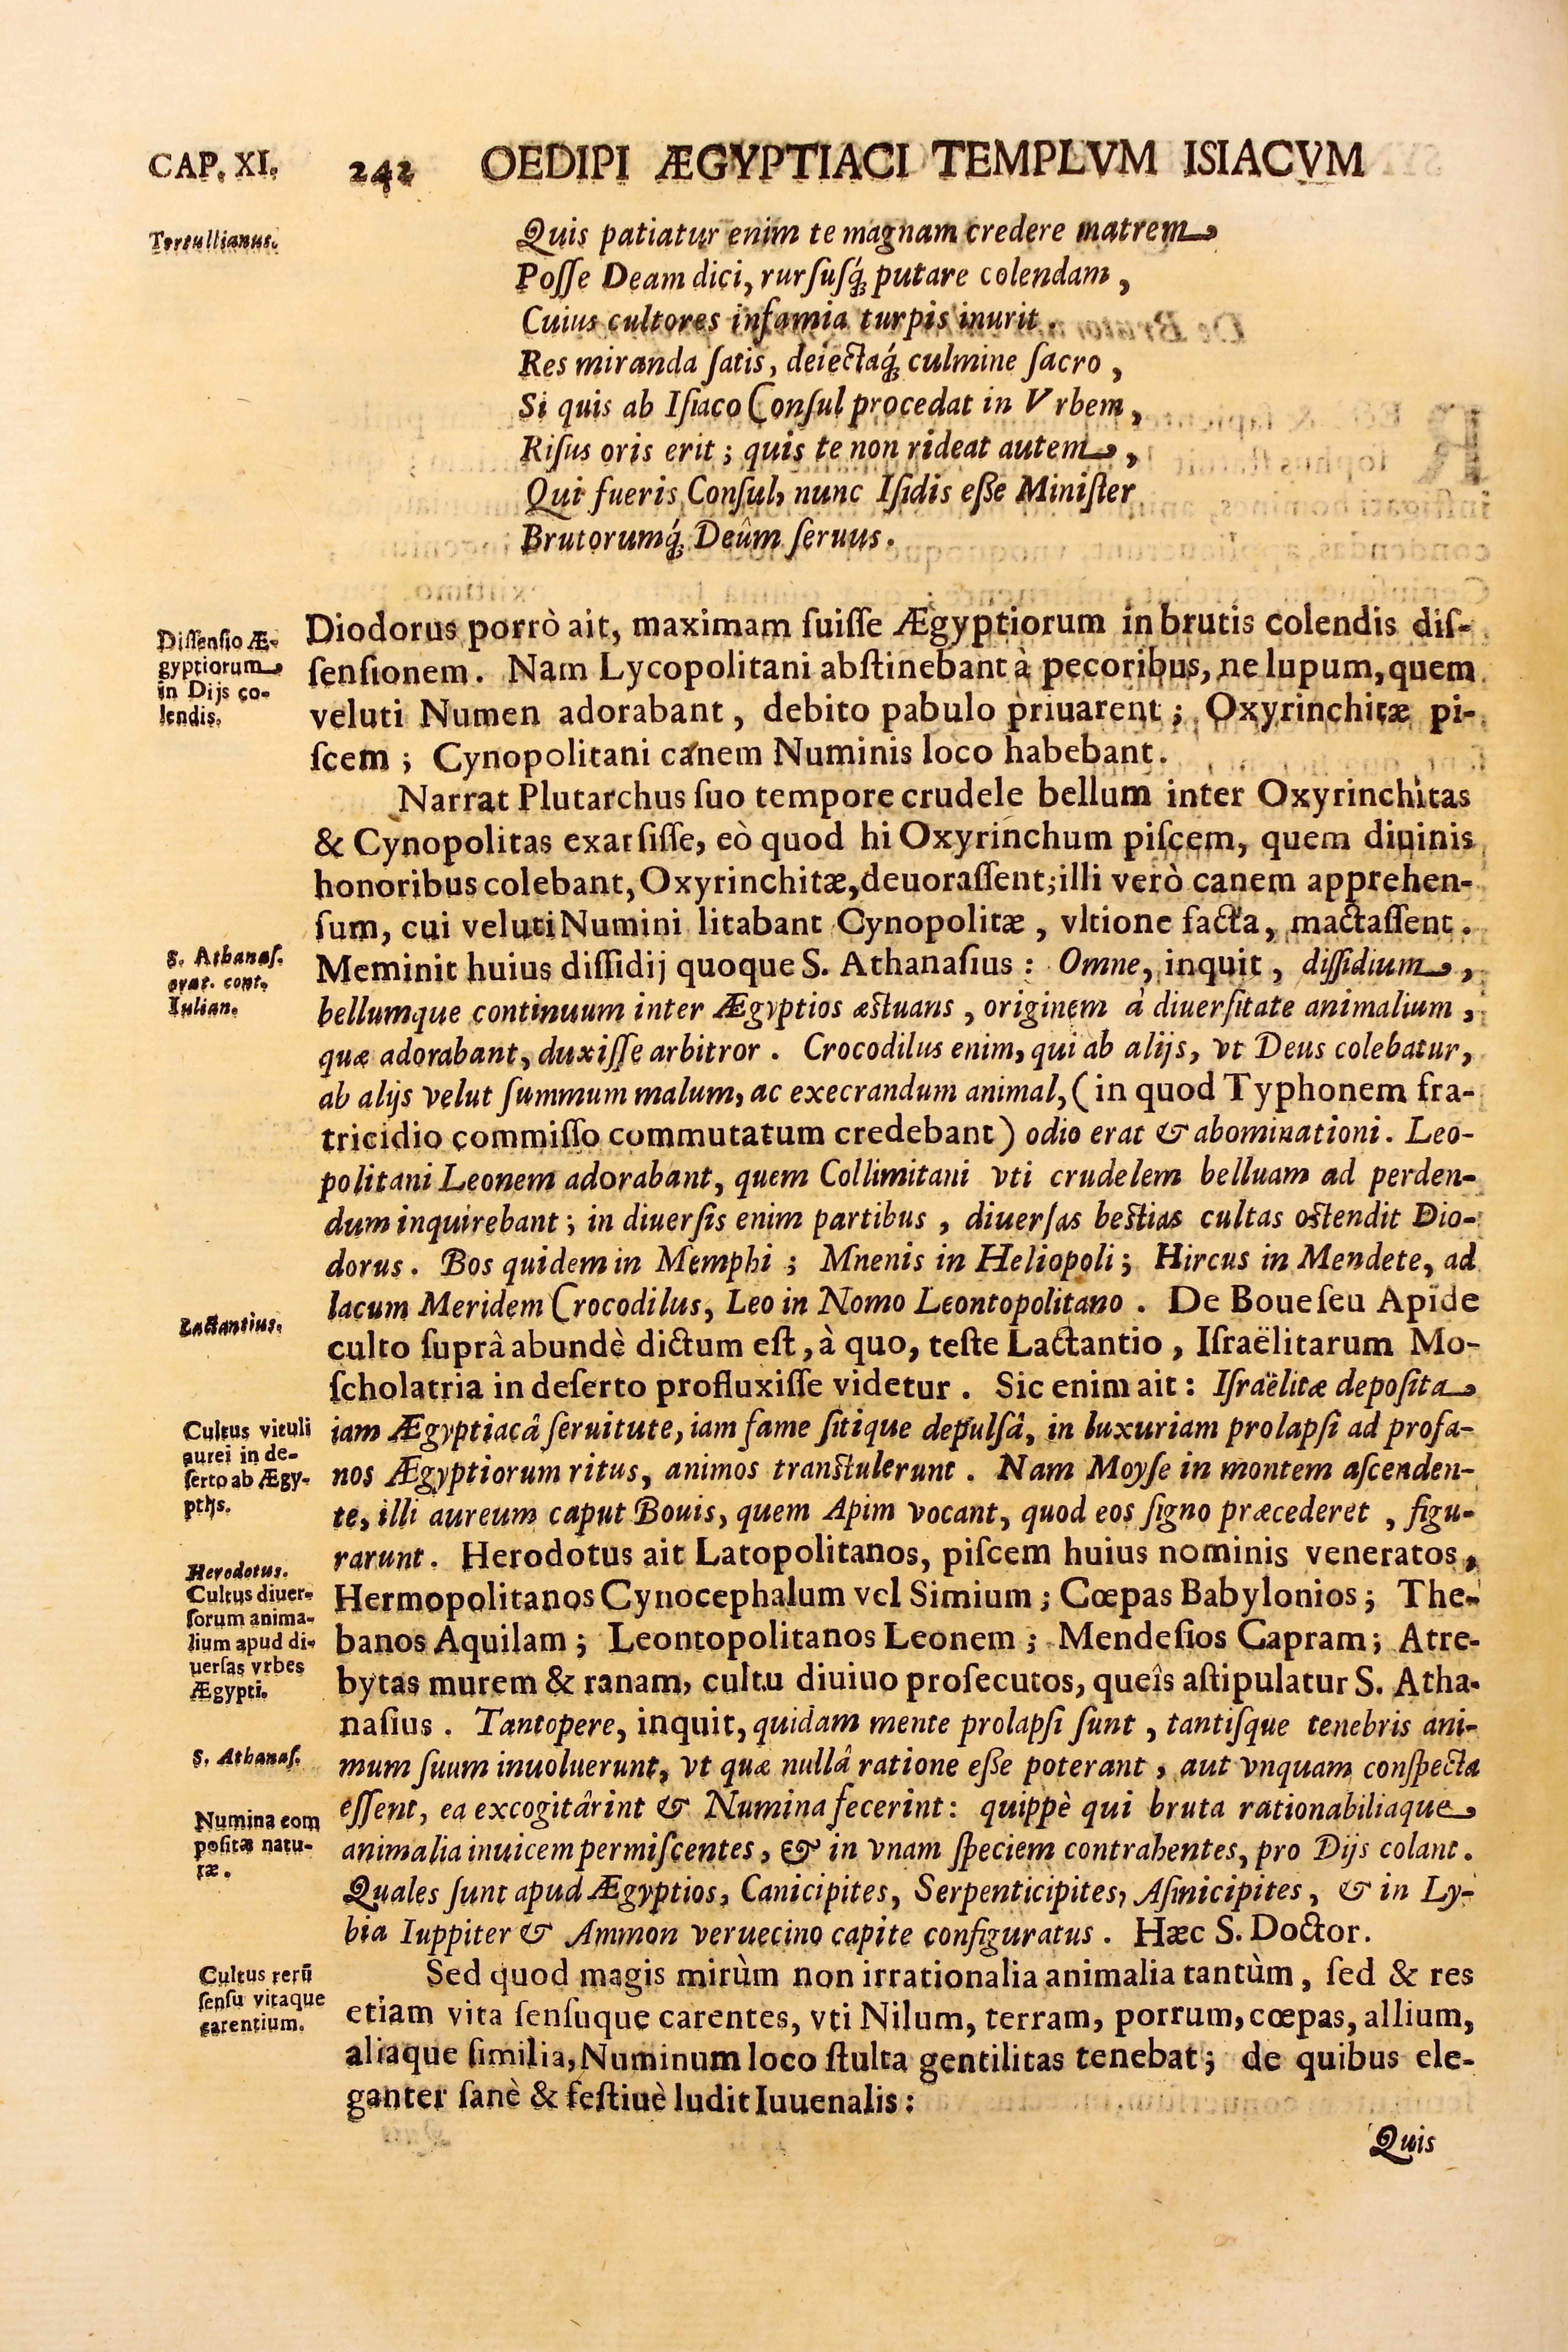 CAP. XI. 242 OEDIPI ÆGYPTIACI TEMPLVM ISIACVM
Tertullianus.
Quis patiatur enim te magnam credere matrem
Poſſe Deam dici, rurſuſq́; putare colendam,
Cuius cultores infamia turpis inurit.
Res miranda ſatis, deiectaq́; culmine ſacro,
Si quis ab Iſiaco Conſul procedat in Vrbem,
Riſus oris erit; quis te non rideat autem,
Qui fueris Conſul, nunc Iſidis eße Miniſter
Brutorumq́; Deûm ſeruus.
Diſſenſio Æ-
gyptiorum
in Dijs co-
lendis.
Diodorus porrò ait, maximam fuiſſe Ægyptiorum in brutis colendis diſ-
ſenſionem. Nam Lycopolitani abſtinebant à pecoribus, ne lupum, quem
veluti Numen adorabant, debito pabulo priuarent; Oxyrinchitæ pi-
ſcem; Cynopolitani canem Numinis loco habebant.
Narrat Plutarchus ſuo tempore crudele bellum inter Oxyrinchitas
& Cynopolitas exarſiſſe, eò quod hi Oxyrinchum piſcem, quem diuinis
honoribus colebant, Oxyrinchitæ, deuoraſſent; illi verò canem apprehen-
ſum, cui veluti Numini litabant Cynopolitæ, vltione facta, mactaſſent.
S. Athanaſ.
orat. cont.
Iulian.
Meminit huius diſſidij quoque S. Athanaſius: Omne, inquit, diſſidium,
bellumque continuum inter Ægyptios æstuans, originem à diuerſitate animalium,
quæ adorabant, duxiſſe arbitror. Crocodilus enim, qui ab alijs, vt Deus colebatur,
ab alijs velut ſummum malum, ac execrandum animal, (in quod Typhonem fra-
tricidio commiſſo commutatum credebant) odio erat & abominationi. Leo-
politani Leonem adorabant, quem Collimitani vti crudelem belluam ad perden-
dum inquirebant; in diuerſis enim partibus, diuerſas bestias cultas ostendit Dio-
dorus. Bos quidem in Memphi; Mnenis in Heliopoli; Hircus in Mendete, ad
lacum Meridem Crocodilus, Leo in Nomo Leontopolitano. De Boue ſeu Apide
Lactantius.
culto ſuprâ abundè dictum eſt, à quo, teſte Lactantio, Iſraëlitarum Mo-
ſcholatria in deſerto profluxiſſe videtur. Sic enim ait: Iſraëlitæ depoſita
Cultus vituli
aurei in de-
ſerto ab Ægy-
ptijs.
iam Ægyptiacâ ſeruitute, iam fame ſitique depulſâ, in luxuriam prolapſi ad profa-
nos Ægyptiorum ritus, animos transtulerunt. Nam Moyſe in montem aſcenden-
te, illi aureum caput Bouis, quem Apim vocant, quod eos ſigno præcederet, figu-
rarunt. Herodotus ait Latopolitanos, piſcem huius nominis veneratos,
Herodotus.
Cultus diuer-
ſorum anima-
lium apud di-
uerſas vrbes
Ægypti.
Hermopolitanos Cynocephalum vel Simium; Cœpas Babylonios; The-
banos Aquilam; Leontopolitanos Leonem; Mendeſios Capram; Atre-
bytas murem & ranam, cultu diuiuo proſecutos, queîs aſtipulatur S. Atha-
naſius. Tantopere, inquit, quidam mente prolapſi ſunt, tantiſque tenebris ani-
S. Athanaſ.
mum ſuum inuoluerunt, vt quæ nullâ ratione eße poterant, aut vnquam conſpecta
eſſent, ea excogitârint & Numina fecerint: quippè qui bruta rationabiliaque
Numina com
poſitæ natu-
ræ.
animalia inuicem permiſcentes, & in vnam ſpeciem contrahentes, pro Dijs colant.
Quales ſunt apud Ægyptios, Canicipites, Serpenticipites, Aſinicipites, & in Ly-
bia Iuppiter & Ammon veruecino capite configuratus. Hæc S. Doctor.
Cultus rerũ
ſenſu vitaque
carentium.
Sed quod magis mirùm non irrationalia animalia tantùm, ſed & res
etiam vita ſenſuque carentes, vti Nilum, terram, porrum, cœpas, allium,
aliaque ſimilia, Numinum loco ſtulta gentilitas tenebat; de quibus ele-
ganter ſanè & feſtiuè ludit Iuuenalis:
Quis